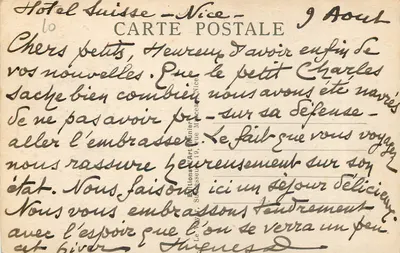 Hotel Suisse - Nice - 9 Aout
10
CARTE POSTALE
Chers petits, Heureux d'avoir enfin de
vos nouvelles. Que le petit Charles
sache bien combien nous avons été navrés
de ne pas avoir pu - sur sa défense -
aller l'embrasser. Le fait que vous voyagez
nous rassure heureusement sur son
état. Nous faisons ici un séjour délicieux.
Nous vous embrassons tendrement
avec l'espoir que l'on se verra un peu
cet hiver